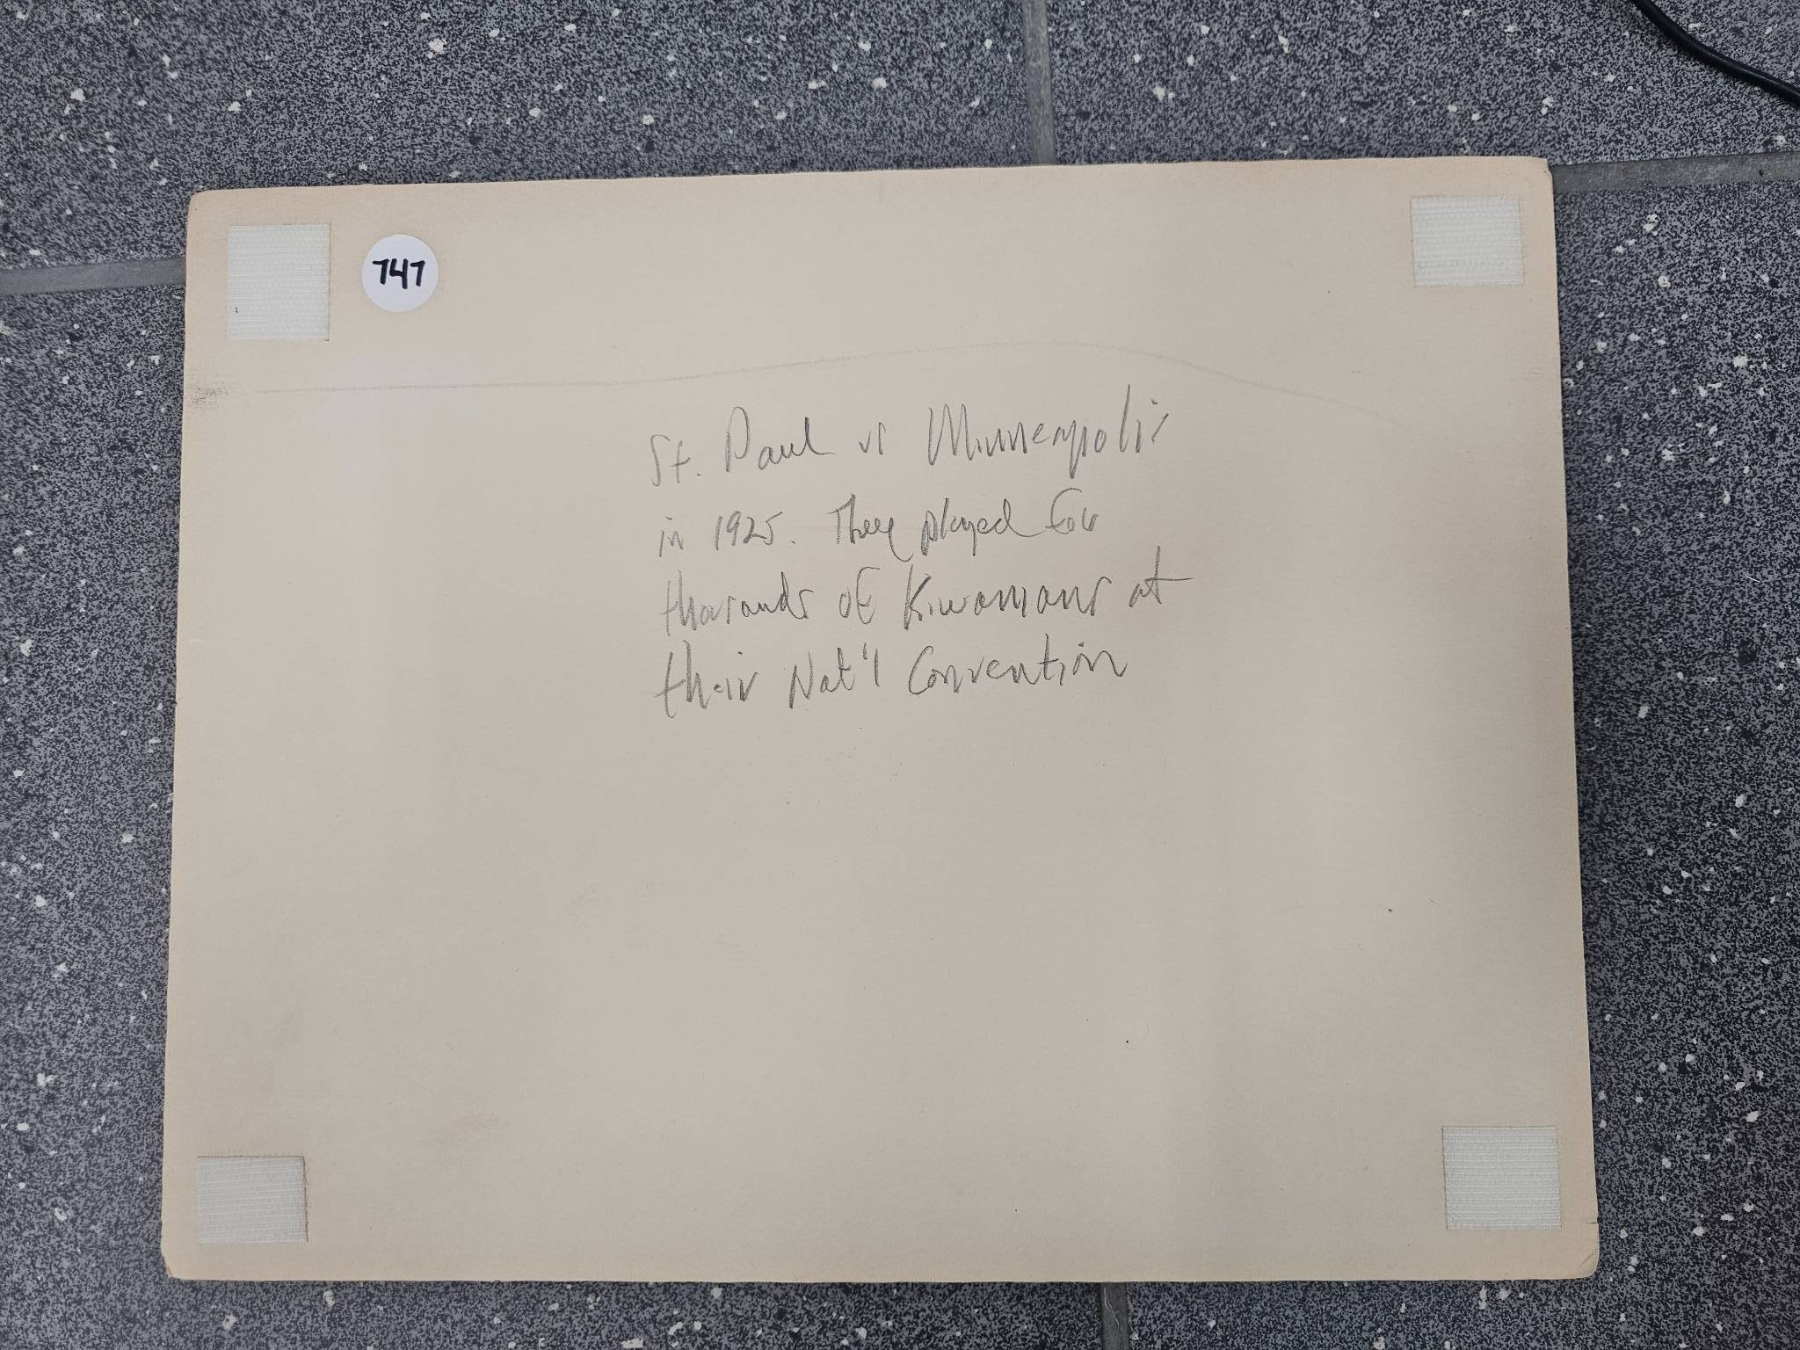 747
St. Paul vs Minneapolis
in 1925. They played for
thousands of Kiwanians at
their Nat'l Convention